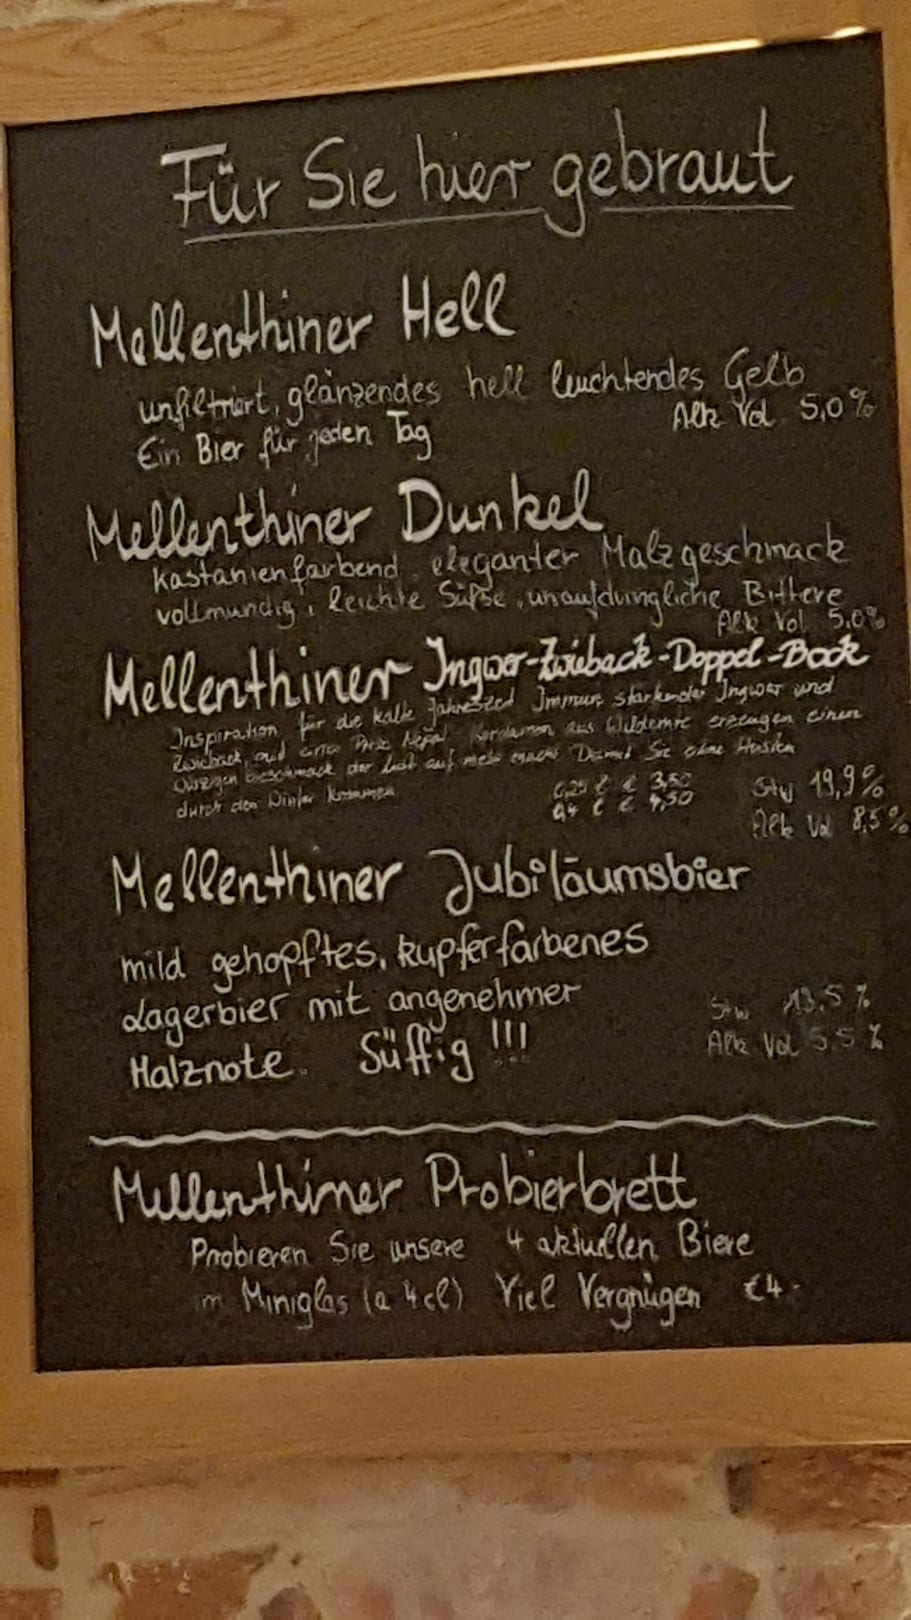 Für Sie hier gebraut
Mellenthiner Hell
unfiltriert, glänzendes hell leuchtendes Gelb
Ein Bier für jeden Tag
Alk Vol 5,0%
Mellenthiner Dunkel
kastanienfarbend, eleganter Malzgeschmack
vollmundig, leichte Süße, unaufdungliche Bittere
Alk Vol 5,0%
Mellenthiner Ingwer-Zwieback-Doppel-Bock
Inspiration für die kalte Jahreszeit Immun stärkender Ingwer und
Zwieback, und Nepal Kardamon aus erzeugen einen
Geschmack der Lust auf mehr macht Damit Sie ohne Husten
durch den Winter kommen
0,25 l € 3,50
0,4 l € 4,50
Stw 19,9%
Alk Vol 8,5%
Mellenthiner Jubiläumsbier
mild gehopftes, kupferfarbenes
Lagerbier mit angenehmer
Malznote. Süffig!!!
Stw 13,5 %
Alk Vol 5,5 %
Mellenthiner Probierbrett
Probieren Sie unsere 4 aktuellen Biere
im Miniglas (a 4cl) Viel Vergnügen €4.-